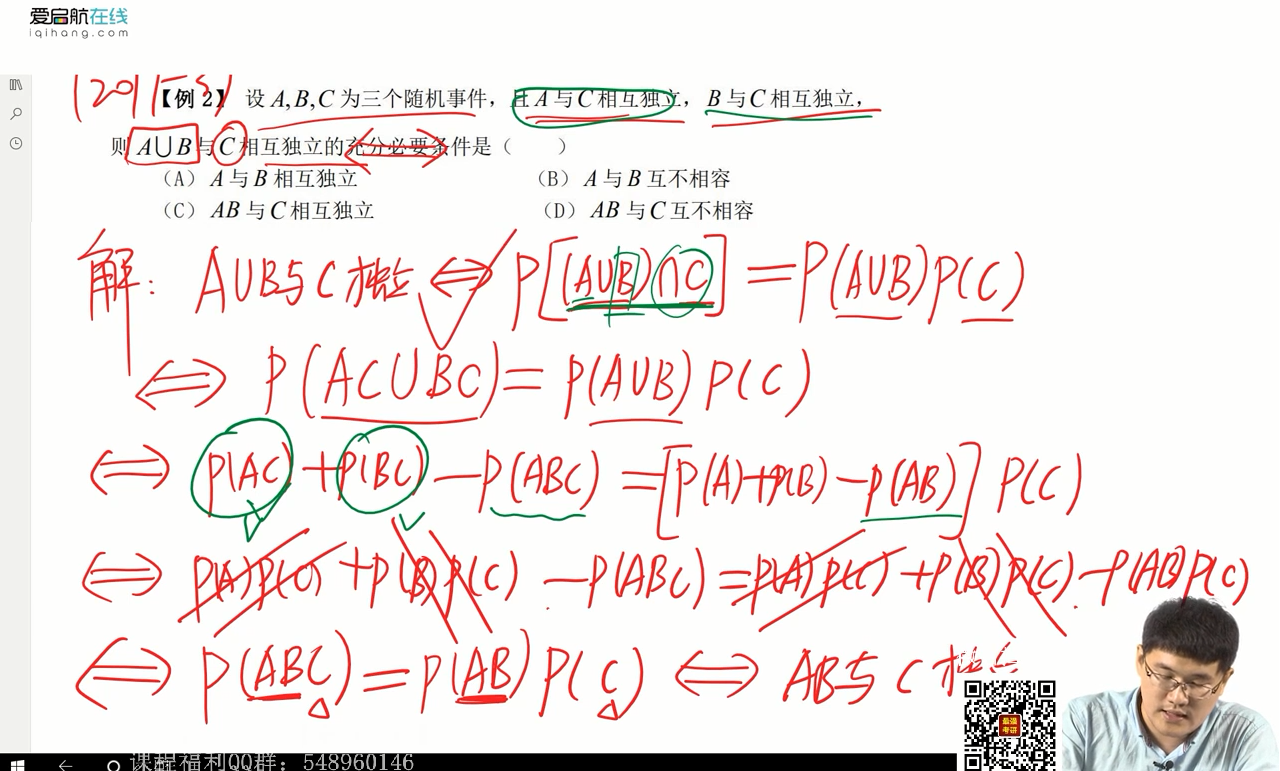 爱启航在线
iqihang.com
【例 2】 设 A,B,C 为三个随机事件，且 A 与 C 相互独立，B 与 C 相互独立，
则 A∪B 与 C 相互独立的充分必要条件是（　　）
（A） A 与 B 相互独立
（B） A 与 B 互不相容
（C） AB 与 C 相互独立
（D） AB 与 C 互不相容
解: A∪B与C相互独立 ⇔ P[(A∪B)∩C] = P(A∪B)P(C)
⇔ P(AC∪BC) = P(A∪B) P(C)
⇔ P(AC) + P(BC) - P(ABC) = [P(A)+P(B) - P(AB)] P(C)
⇔ P(A)P(C) + P(B)P(C) - P(ABC) = P(A)P(C) + P(B)P(C) - P(AB)P(C)
⇔ P(ABC) = P(AB) P(C) ⇔ AB与C
最强
考研
课程福利QQ群：548960146